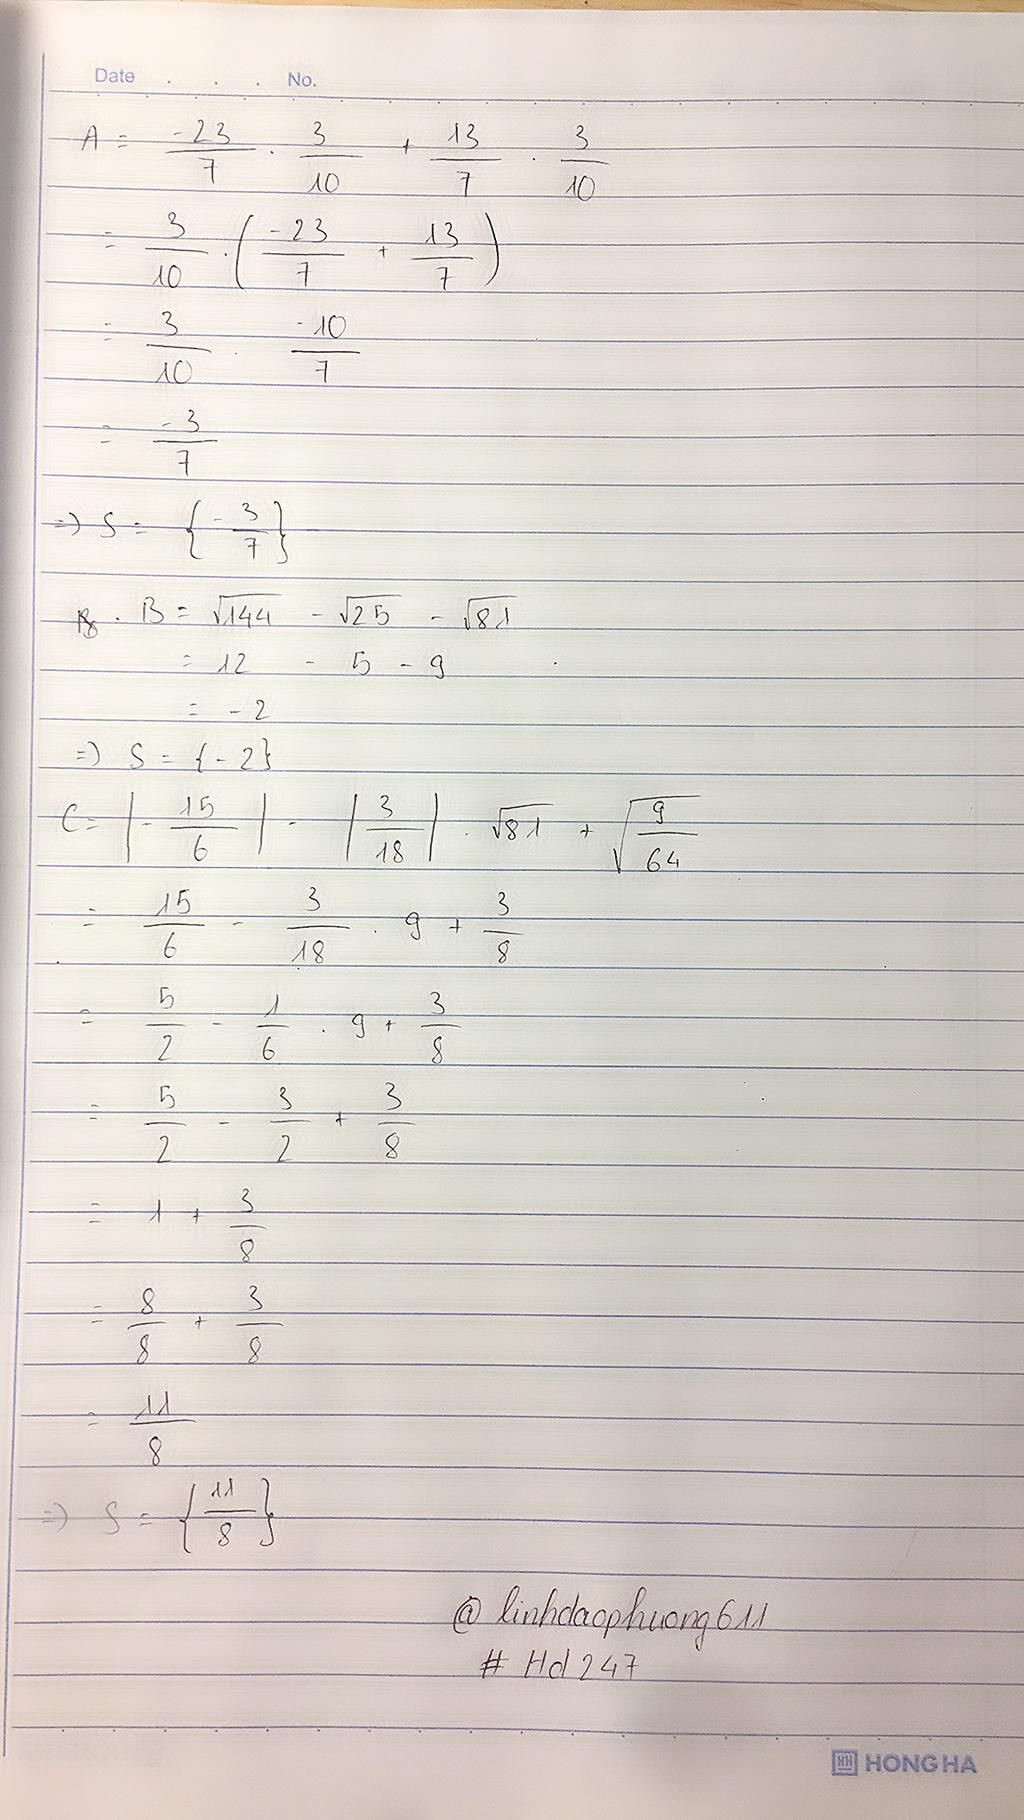 Date . . . No.
A = -23/7 . 3/10 + 13/7 . 3/10
= 3/10 . (-23/7 + 13/7)
= 3/10 . -10/7
= -3/7
=) S = {-3/7}
B . B = √144 - √25 - √81
= 12 - 5 - 9
= -2
=) S = {-2}
C = |-15/6| - |3/18| . √81 + √(9/64)
= 15/6 - 3/18 . 9 + 3/8
= 5/2 - 1/6 . 9 + 3/8
= 5/2 - 3/2 + 3/8
= 1 + 3/8
= 8/8 + 3/8
= 11/8
=) S = {11/8}
@ linhdaophuong611
# Hd247
HH HONG HA